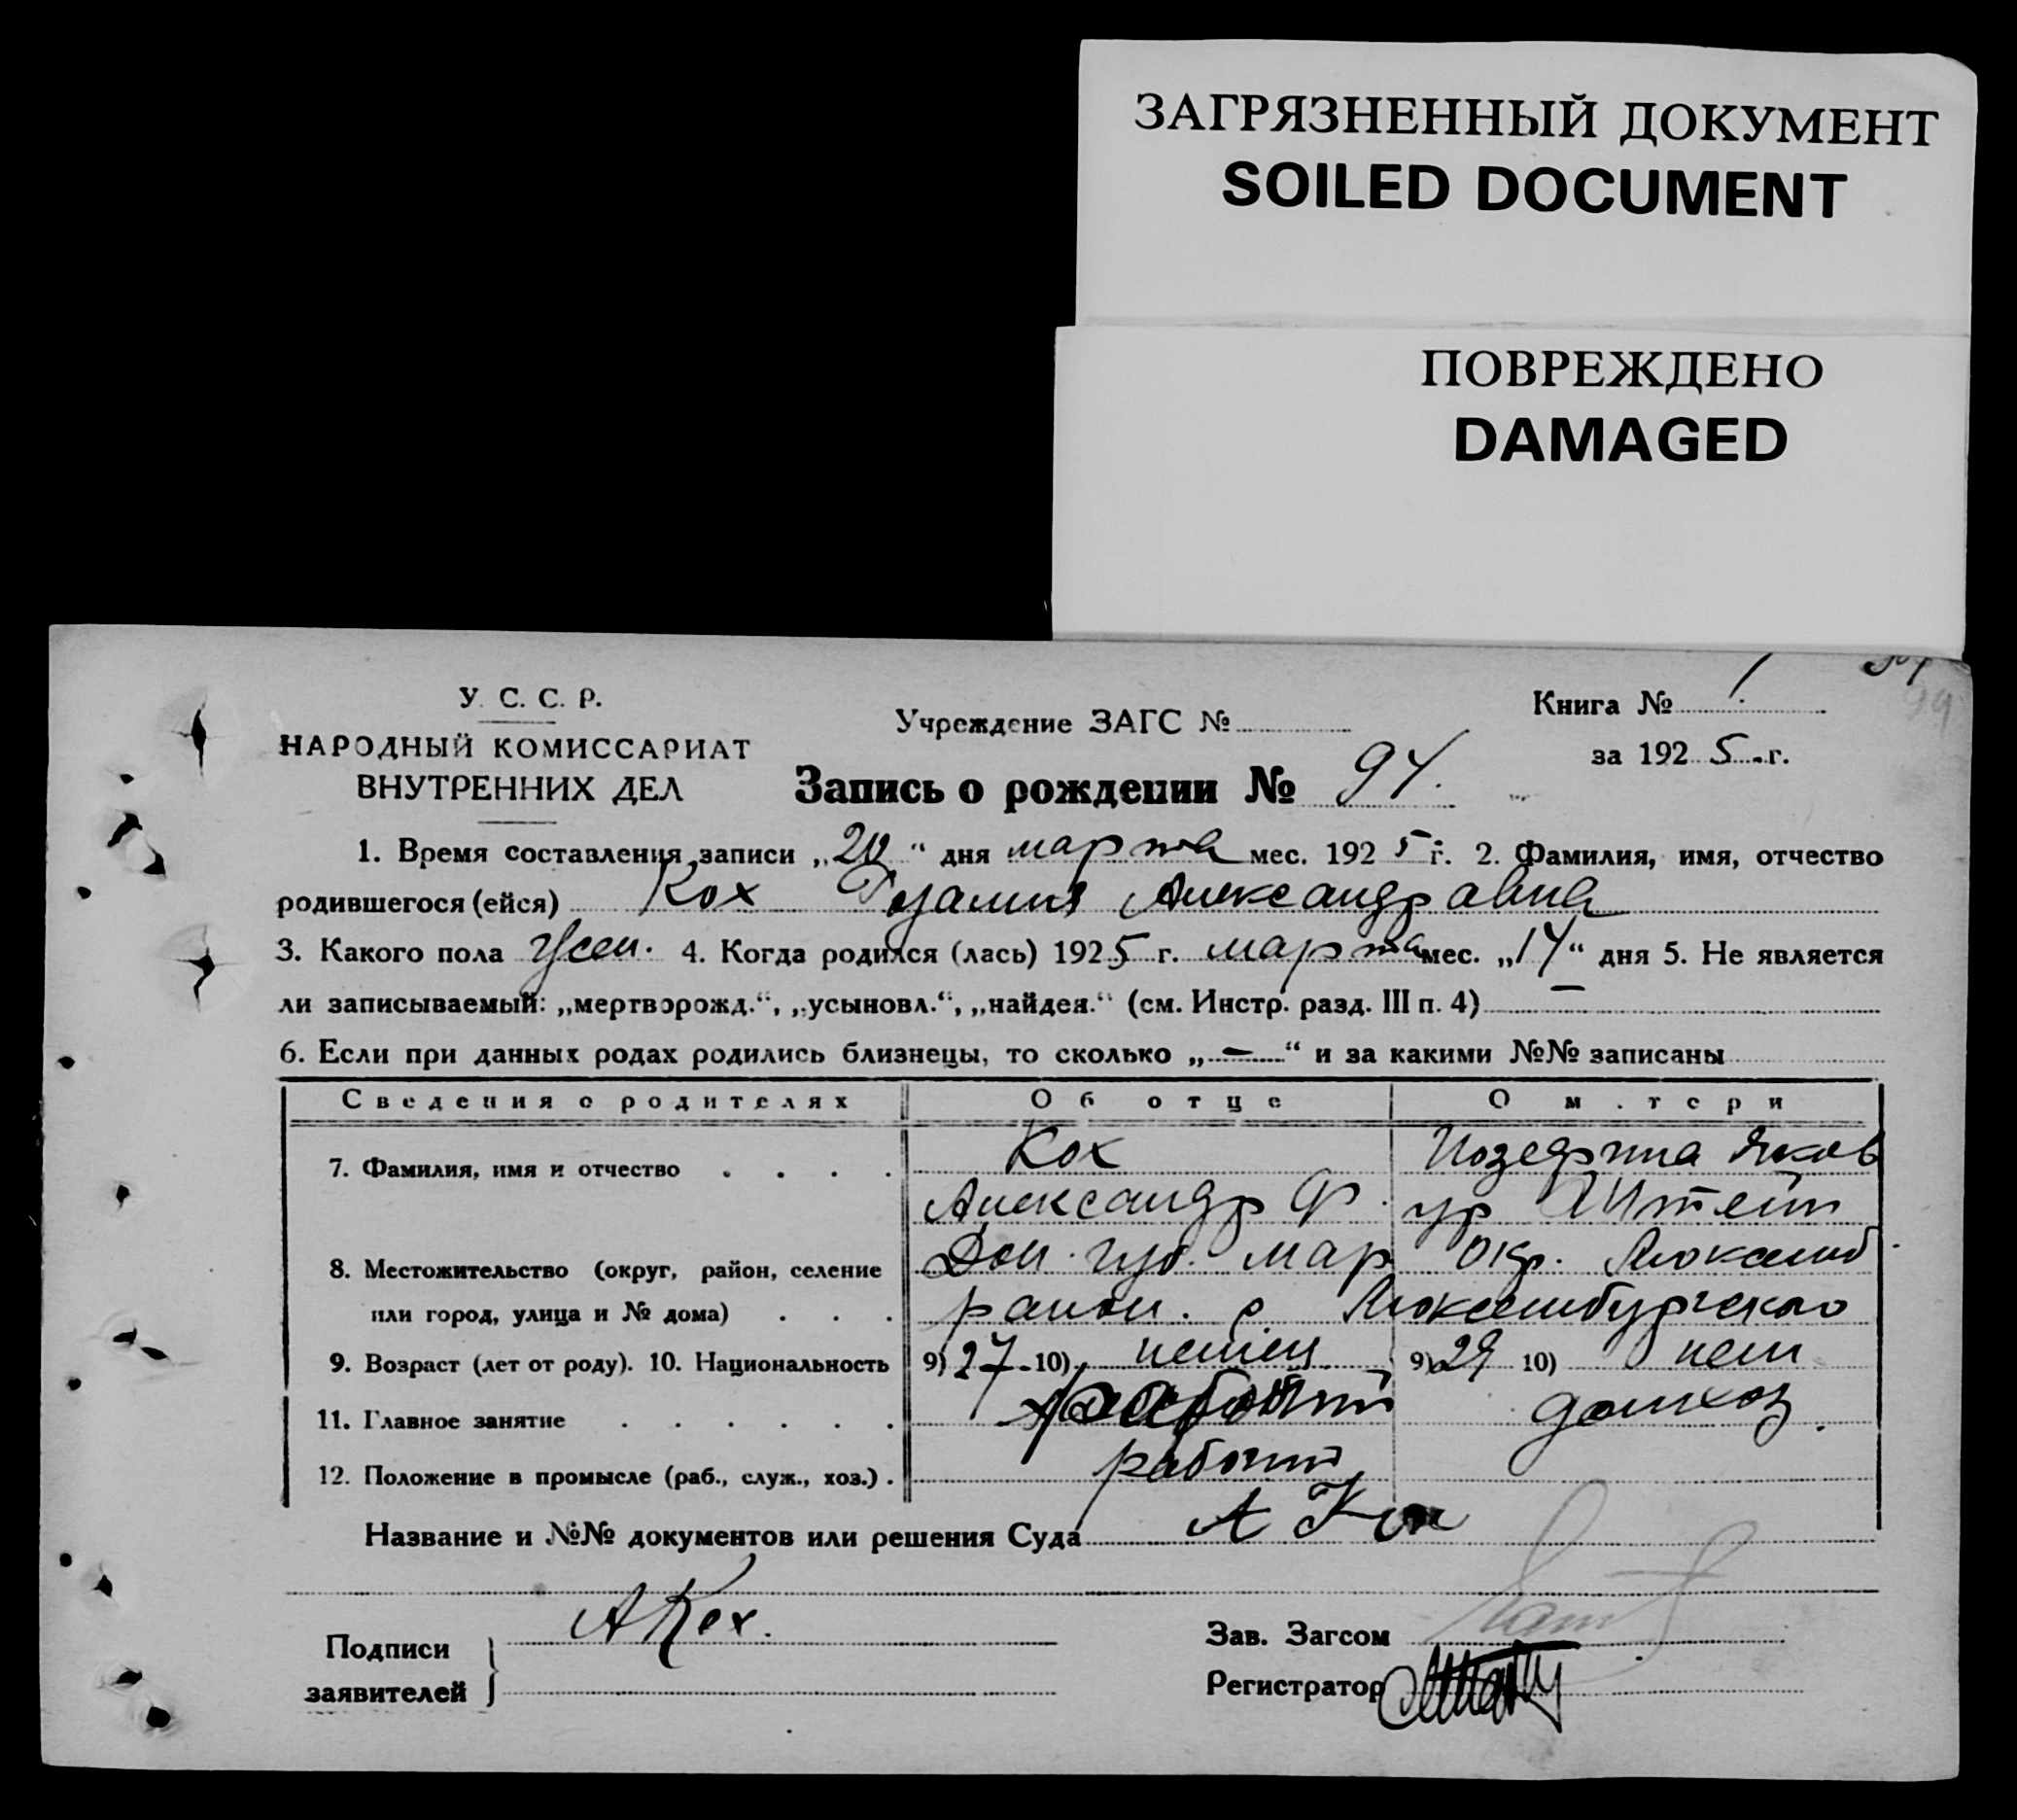 ЗАГРЯЗНЕННЫЙ ДОКУМЕНТ
SOILED DOCUMENT
ПОВРЕЖДЕНО
DAMAGED
У. С. С. Р.
НАРОДНЫЙ КОМИССАРИАТ
ВНУТРЕННИХ ДЕЛ
Учреждение ЗАГС №
Книга № 1
за 1925 г.
Запись о рождении № 94.
1. Время составления записи „20“ дня марта мес. 1925 г. 2. Фамилия, имя, отчество
родившегося (ейся) Кох Розалия Александравна
3. Какого пола жен. 4. Когда родился (лась) 1925 г. марта мес. „14“ дня 5. Не является
ли записываемый: „мертворожд.“, „усыновл.“, „найден.“ (см. Инстр. разд. III п. 4) —
6. Если при данных родах родились близнецы, то сколько „—“ и за какими №№ записаны
Сведения о родителях Об отце О матери
7. Фамилия, имя и отчество . . . . Кох Иозефина Яков
Александр Ф. ур Штейн
8. Местожительство (округ, район, селение Дон. губ. Мар окр. Люксемб
или город, улица и № дома) . . . район. с Люксембургского
9. Возраст (лет от роду). 10. Национальность 9) 27 10) немец 9) 29 10) нем
11. Главное занятие . . . . . . домхоз.
12. Положение в промысле (раб., служ., хоз.) . рабочий
Название и №№ документов или решения Суда А Кох
А Кох.
Подписи
заявителей
Зав. Загсом
Регистратор